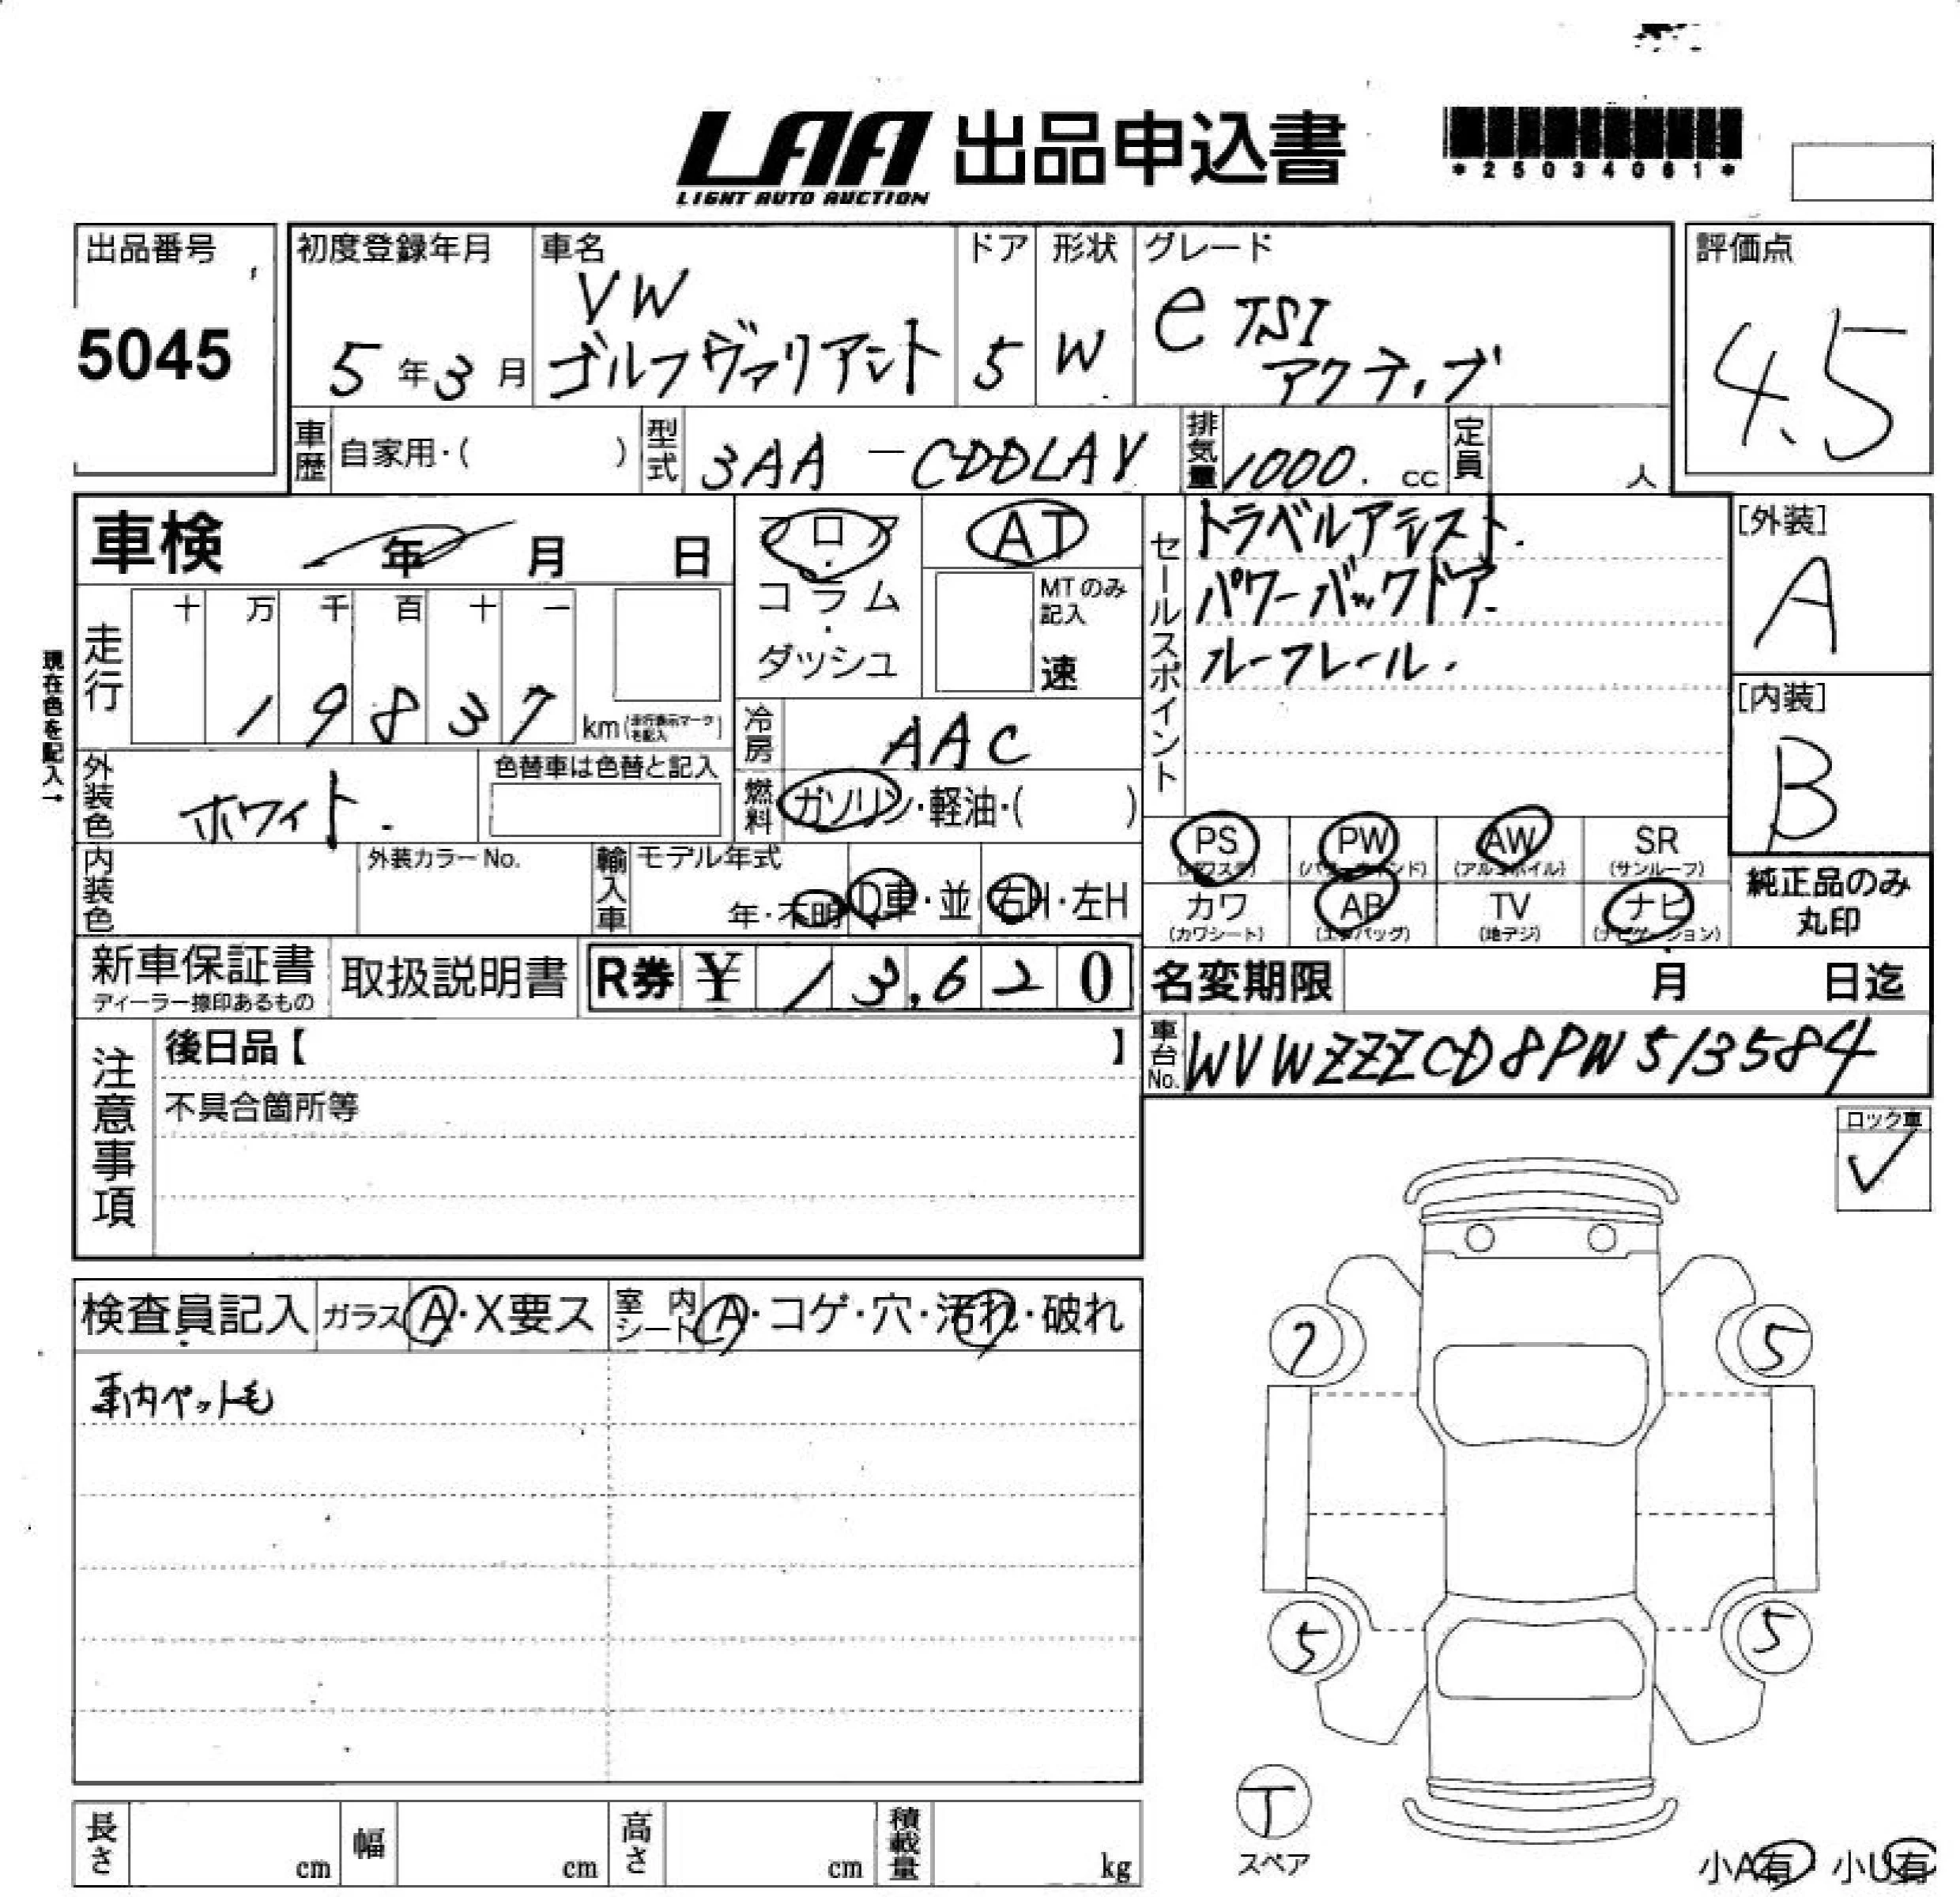 LAA 出品申込書
LIGHT AUTO AUCTION
*25034061*
出品番号
5045
初度登録年月
5年3月
車名
VW
ゴルフヴァリアント
ドア
5
形状
W
グレード
e TSI
アクティブ
評価点
4.5
車歴 自家用・( )
型式 3AA-CDDLAY
排気量 1000. cc
定員 人
車検 年 月 日
フロア・コラム・ダッシュ
AT
MTのみ記入
速
セールスポイント
トラベルアシスト.
パワーバックドア.
ルーフレール.
[外装]
A
[内装]
B
現在色を記入→
走行
十 万 千 百 十 一
1 9 8 3 7 km(走行表示マークを記入)
冷房 AAC
燃料 ガソリン・軽油・( )
外装色 ホワイト.
色替車は色替と記入
内装色
外装カラーNo.
輸入車 モデル年式
年・不明 D車・並 右H・左H
PS (パワステ)
PW (パワーウィンド)
AW (アルミホイル)
SR (サンルーフ)
カワ (カワシート)
AB (エアバッグ)
TV (地デジ)
ナビ (ナビゲーション)
純正品のみ
丸印
新車保証書
ディーラー捺印あるもの
取扱説明書
R券 ¥ 13,620
名変期限 月 日迄
車台No. WVWZZZCD8PW513584
注意事項
後日品【 】
不具合箇所等
ロック車
✓
検査員記入 ガラス A・X要ス 室内シート A・コゲ・穴・汚れ・破れ
車内ペット毛
7 5
5 5
T
スペア
長さ cm 幅 cm 高さ cm 積載量 kg
小A有・小U有